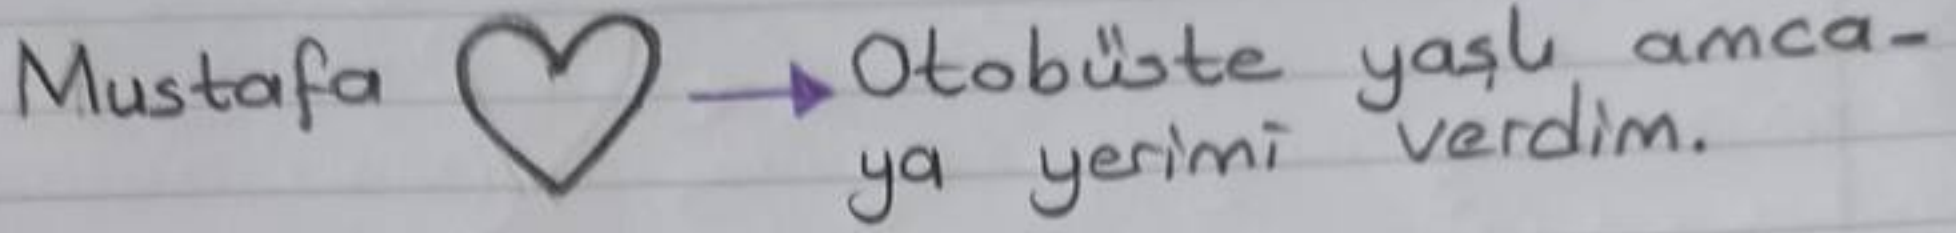 Mustafa ♡ → Otobüste yaşlı amca-
ya yerimi verdim.